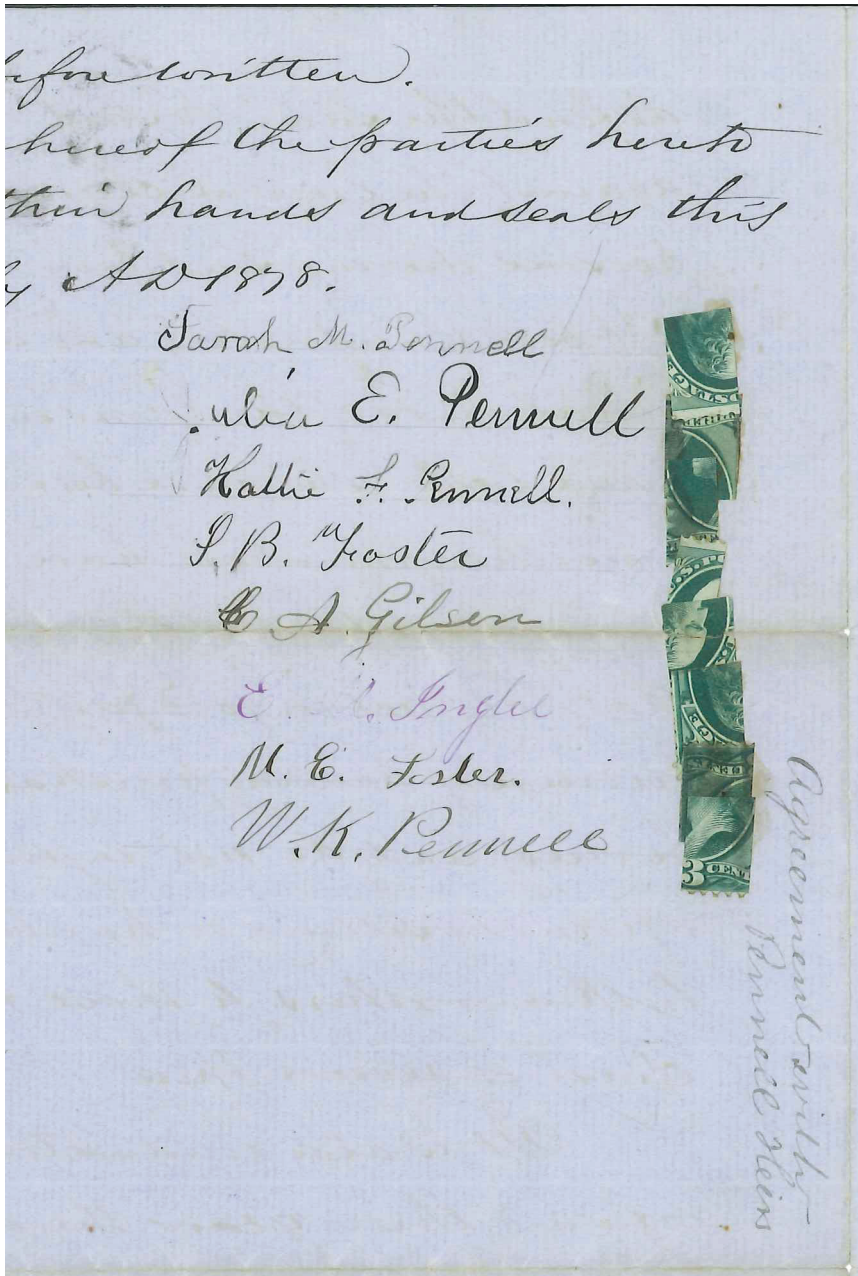 before written.
hereof the parties hereto
their hands and seals this
A D 1878.
Sarah M. Pennell
Julia E. Pennell
Hattie F. Pennell.
S. B. Foster
A. Gilson
E. Ingle
M. E. Foster.
W. K. Pennell
3 CENT
Agreement with
Pennell Heirs